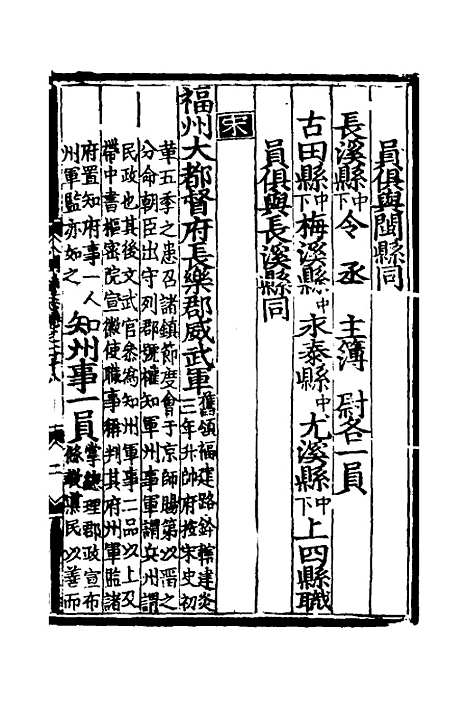 員俱與閩縣同
長溪縣中下令 丞 主簿 尉各一員
古田縣中下梅溪縣中永泰縣中尤溪縣中下上四縣職
員俱與長溪縣同
宋
福州大都督府長樂郡威武軍舊領福建路鈐轄建炎
三年升帥府按宋史初
革五季之患召諸鎮節度會于京師賜第以留之
分命朝臣出守列郡號權知軍州事軍謂兵州謂
民政也其後文武官參為知州軍事二品以上及
帶中書樞密院宣徽使職事稱判某府州軍監諸
府置知府事一人知
州軍監亦如之
知州事一員掌總理郡政宣布
條教導民以善而